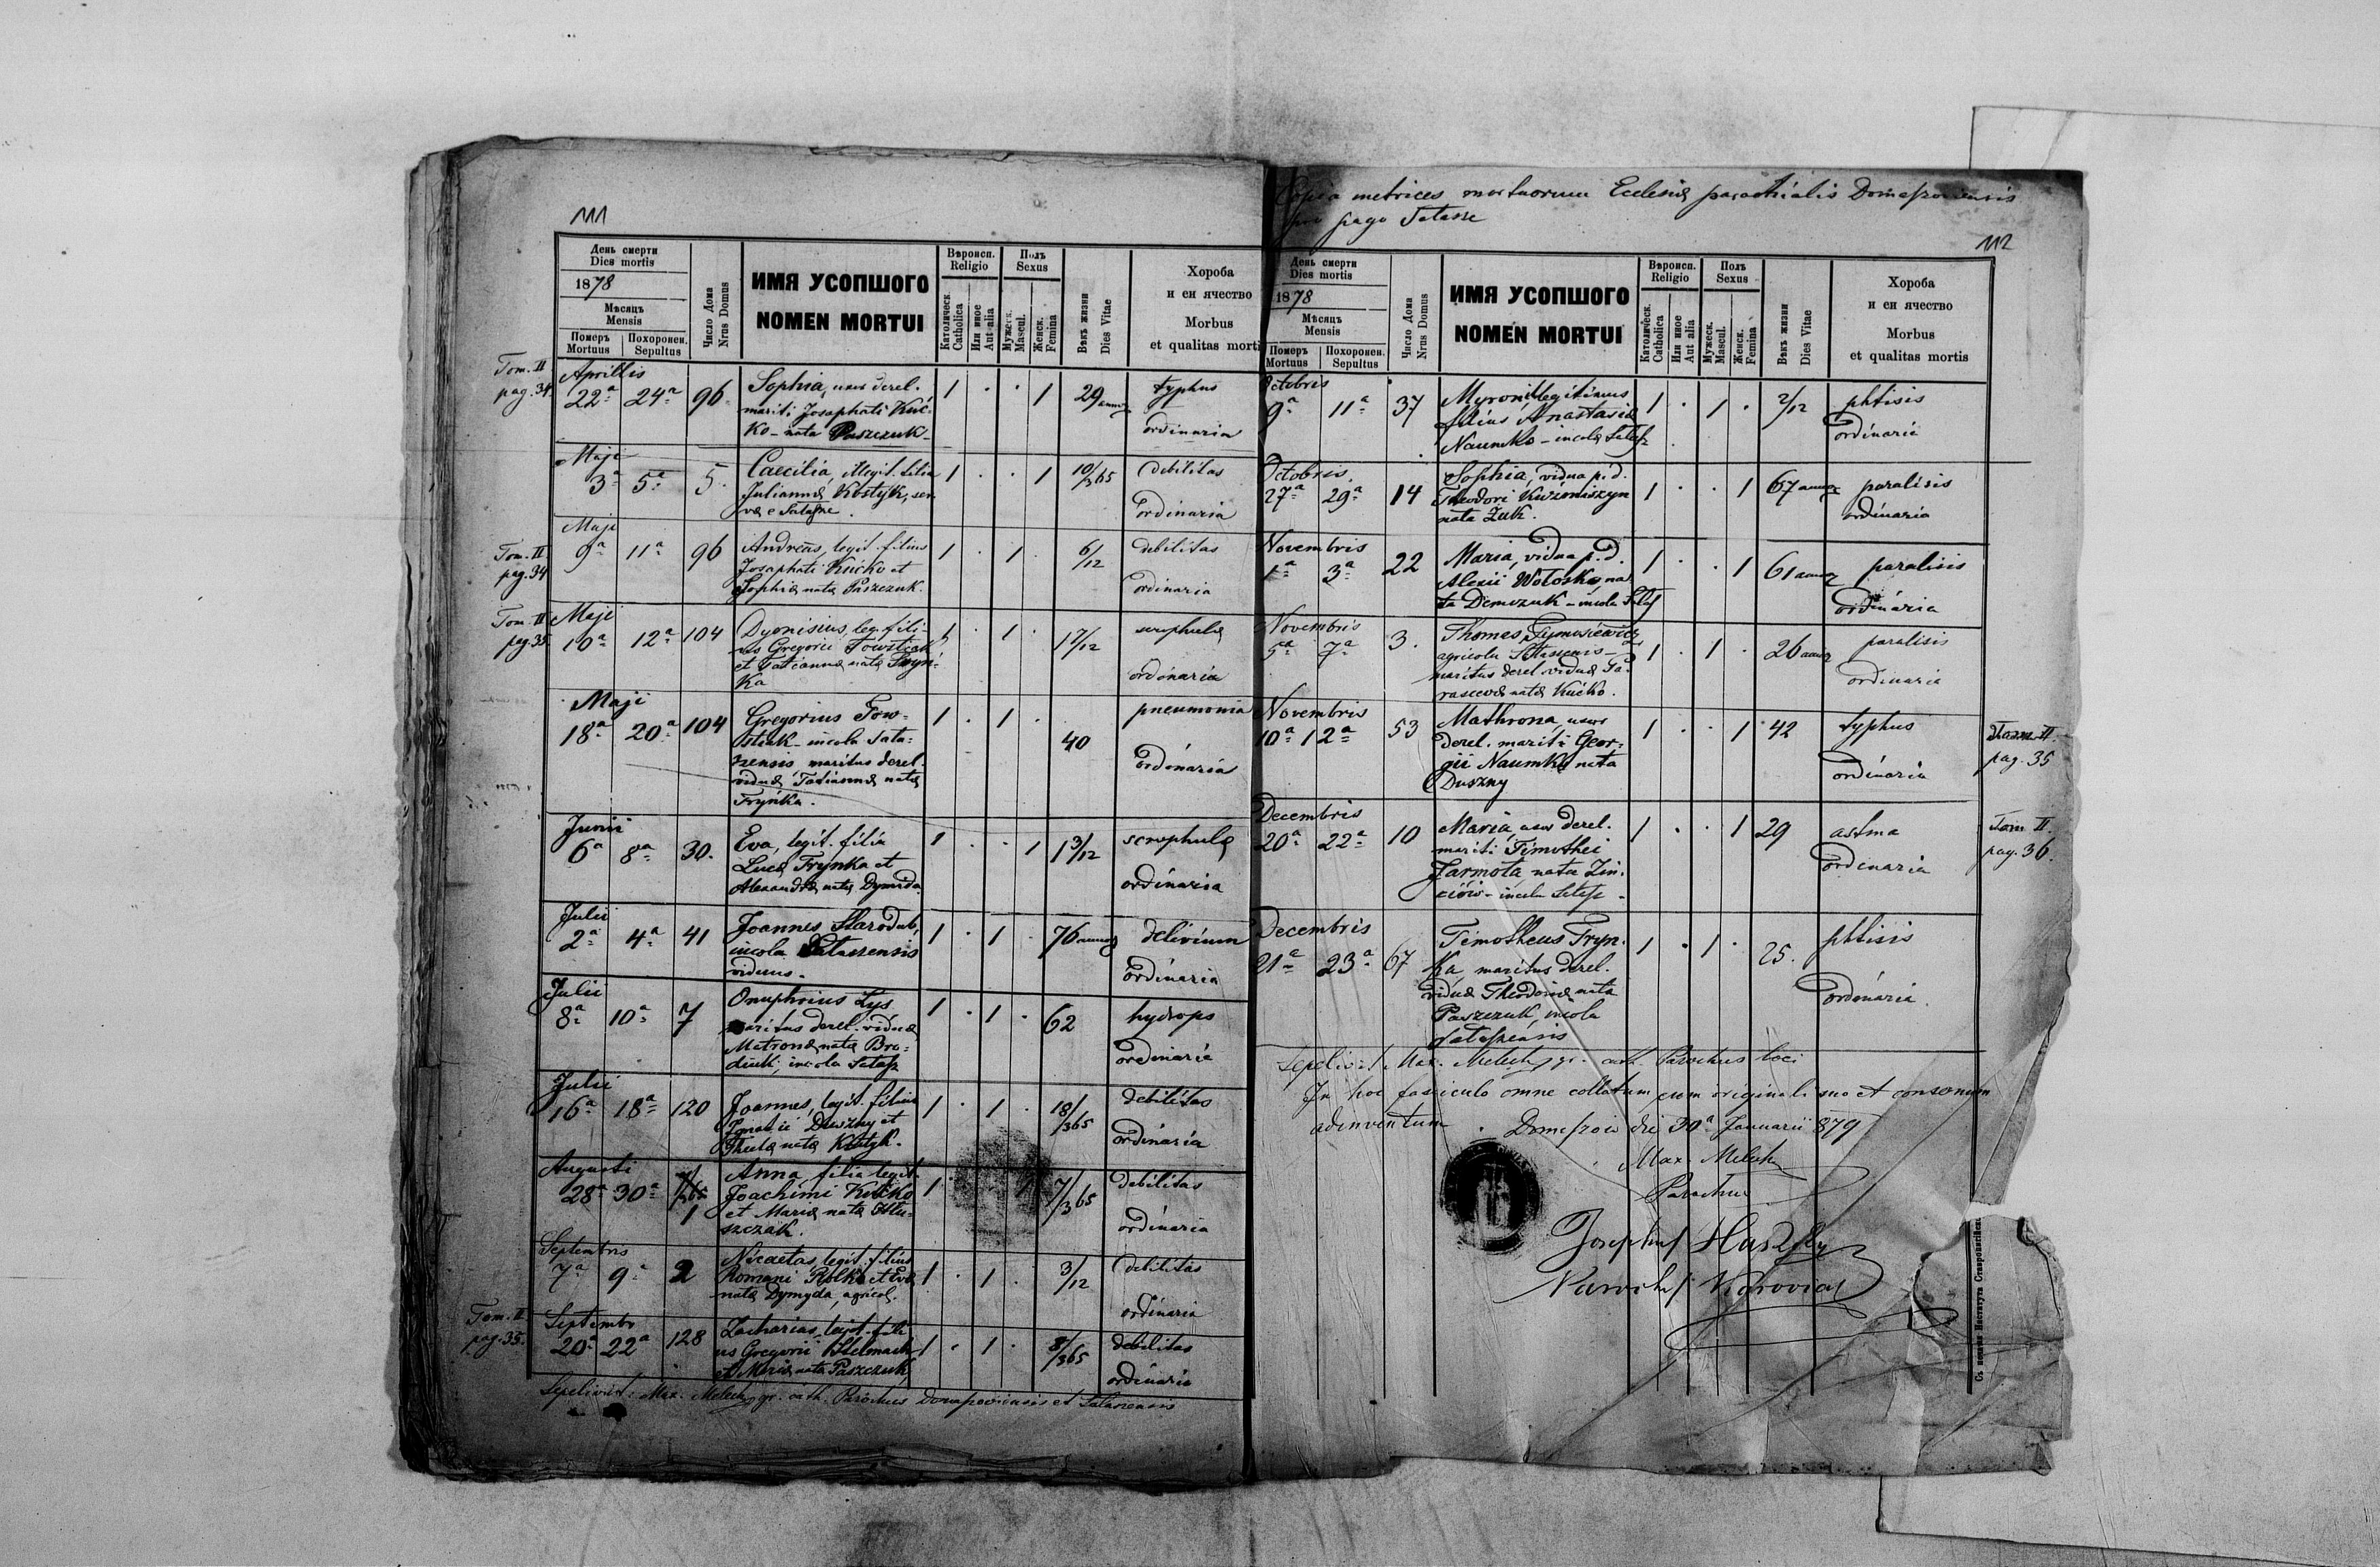 111
День смерти
Dies mortis
1878
Мѣсяць
Mensis
Померъ
Mortuus
Похоронен.
Sepultus
Число Дома
Nrus Domus
ИМЯ УСОПШОГО
NOMEN MORTUI
Вѣроисп.
Religio
Католическ.
Catholica
Или иное
Aut alia
Полъ
Sexus
Мужеск.
Mascul.
Женск.
Femina
Вѣкъ жизни
Dies Vitae
Хороба
и еи ячество
Morbus
et qualitas mortis
Tom. II
pag. 34
Aprillis
22ª 24ª 96 Sophia, uxor derel. 1 . . 1 29 annor typhus
mariti Josaphati Kuć-
ko - nata Paszczuk - ordinaria
Maji
3ª 5ª 5. Caecilia, illegit. filia 1 . . 1 10/365 debilitas
Juliannae Kostyk, ser-
vae e Satasze. ordinaria
Tom. II
pag. 34
Maji
9ª 11ª 96 Andreas, legit. filius 1 . 1 . 6/12 debilitas
Josaphati Kućko et
Sophiae natae Paszczuk. ordinaria
Tom. II
pag. 35
Maji
10ª 12ª 104 Dyonisius, leg. fili- 1 . 1 . 1 7/12 scrophulae
us Gregorii Towstiak
et Tatiannae natae Fryń-
ka ordinaria
Maji
18ª 20ª 104 Gregorius Tow- 1 . 1 . 40 pneumonia
stiak - incola Sata-
szensis maritus derel.
viduae Tatiannae natae
Fryńka. ordinaria
Junii
6ª 8ª 30. Eva, legit. filia 1 . . 1 1 3/12 scrophulae
Lucae Frynka et
Alexandrae natae Dymida ordinaria
Julii
2ª 4ª 41 Joannes Starodub, 1 . 1 . 76 annor delirium
incola Sataszensis
viduus. ordinaria
Julii
8ª 10ª 7 Onuphrius Lys 1 . 1 . 62 hydrops
maritus derel. viduae
Matronae natae Bro-
diuk, incola Satasz ordinaria
Julii
16ª 18ª 120 Joannes, legit. filius 1 . 1 . 18/365 debilitas
Ignatii Duszny et
Theclae natae Kostyk. ordinaria
Augusti
28ª 30ª 1 Anna, filia legit. 1 7/365 debilitas
Joachimi Kućko
et Mariae natae Hlu-
szczak. ordinaria
Septembris
7ª 9ª 2 Nicaetas, legit. filius 1 . 1 . 3/12 debilitas
Romani Rolka et Evae
natae Dymyda, agricol. ordinaria
Tom. II
pag. 35.
Septembr
20ª 22ª 128 Zacharias, legit. fili- 1 . 1 . 8/365 debilitas
us Gregorii Stelmach
et Mariae nata Paszczuk ordinaria
Sepelivit: Max. Melech gr. cath. Parochus Domaszoviensis et Sataszensis
Copia metrices mortuorum Ecclesiae parochialis Domaszoviensis
pro pago Satasze
112
День смерти
Dies mortis
1878
Мѣсяць
Mensis
Померъ
Mortuus
Похоронен.
Sepultus
Число Дома
Nrus Domus
ИМЯ УСОПШОГО
NOMEN MORTUI
Вѣроисп.
Religio
Католическ.
Catholica
Или иное
Aut alia
Полъ
Sexus
Мужеск.
Mascul.
Женск.
Femina
Вѣкъ жизни
Dies Vitae
Хороба
и еи ячество
Morbus
et qualitas mortis
Octobris
9ª 11ª 37 Myron, illegitimus 1 . 1 . 2/12 phtisis
filius Anastasiae
Naumko - incolae Satasz ordinaria
Octobris.
27ª 29ª 14 Sophia, vidua p. d. 1 . . 1 67 annor paralisis
Theodori
nata Żuk. ordinaria
Novembris
1ª 3ª 22 Maria, vidua p. d. 1 . . 1 61 annor paralisis
Alexii Wołoska, na-
ta Demczuk - incola ordinaria
Novembris
5ª 7ª 3. Thomas 1 . 1 . 26 annor paralisis
agricola Sataszensis -
maritus derel. viduae Pa-
rascevae natae Kućko. ordinaria
Novembris
10ª 12ª 53 Mathrona, uxor 1 . . 1 42 typhus
derel. mariti Geor-
gii Naumko nata
Duszny ordinaria
Tom II
pag. 35
Decembris
20ª 22ª 10 Maria, uxor derel. 1 . . 1 29 astma
mariti Timothei
Jarmoła nata Zin-
ciów - incola Satasz - ordinaria
Tom II.
pag. 36.
Decembris
21ª 23ª 67 Timotheus Fryn- 1 . 1 . 25. phtisis
ka, maritus derel.
viduae Theodosiae nata
Paszczuk, incola
Sataszensis ordinaria.
Sepelivit Max. Melech gr. cath. Parochus loci
In hoc fasciculo omne collatum cum originali suo et consonum
adinventum. Domaszow die 30ª Januarii 879
Max. Melech
Parochus
Josephus
Parochus